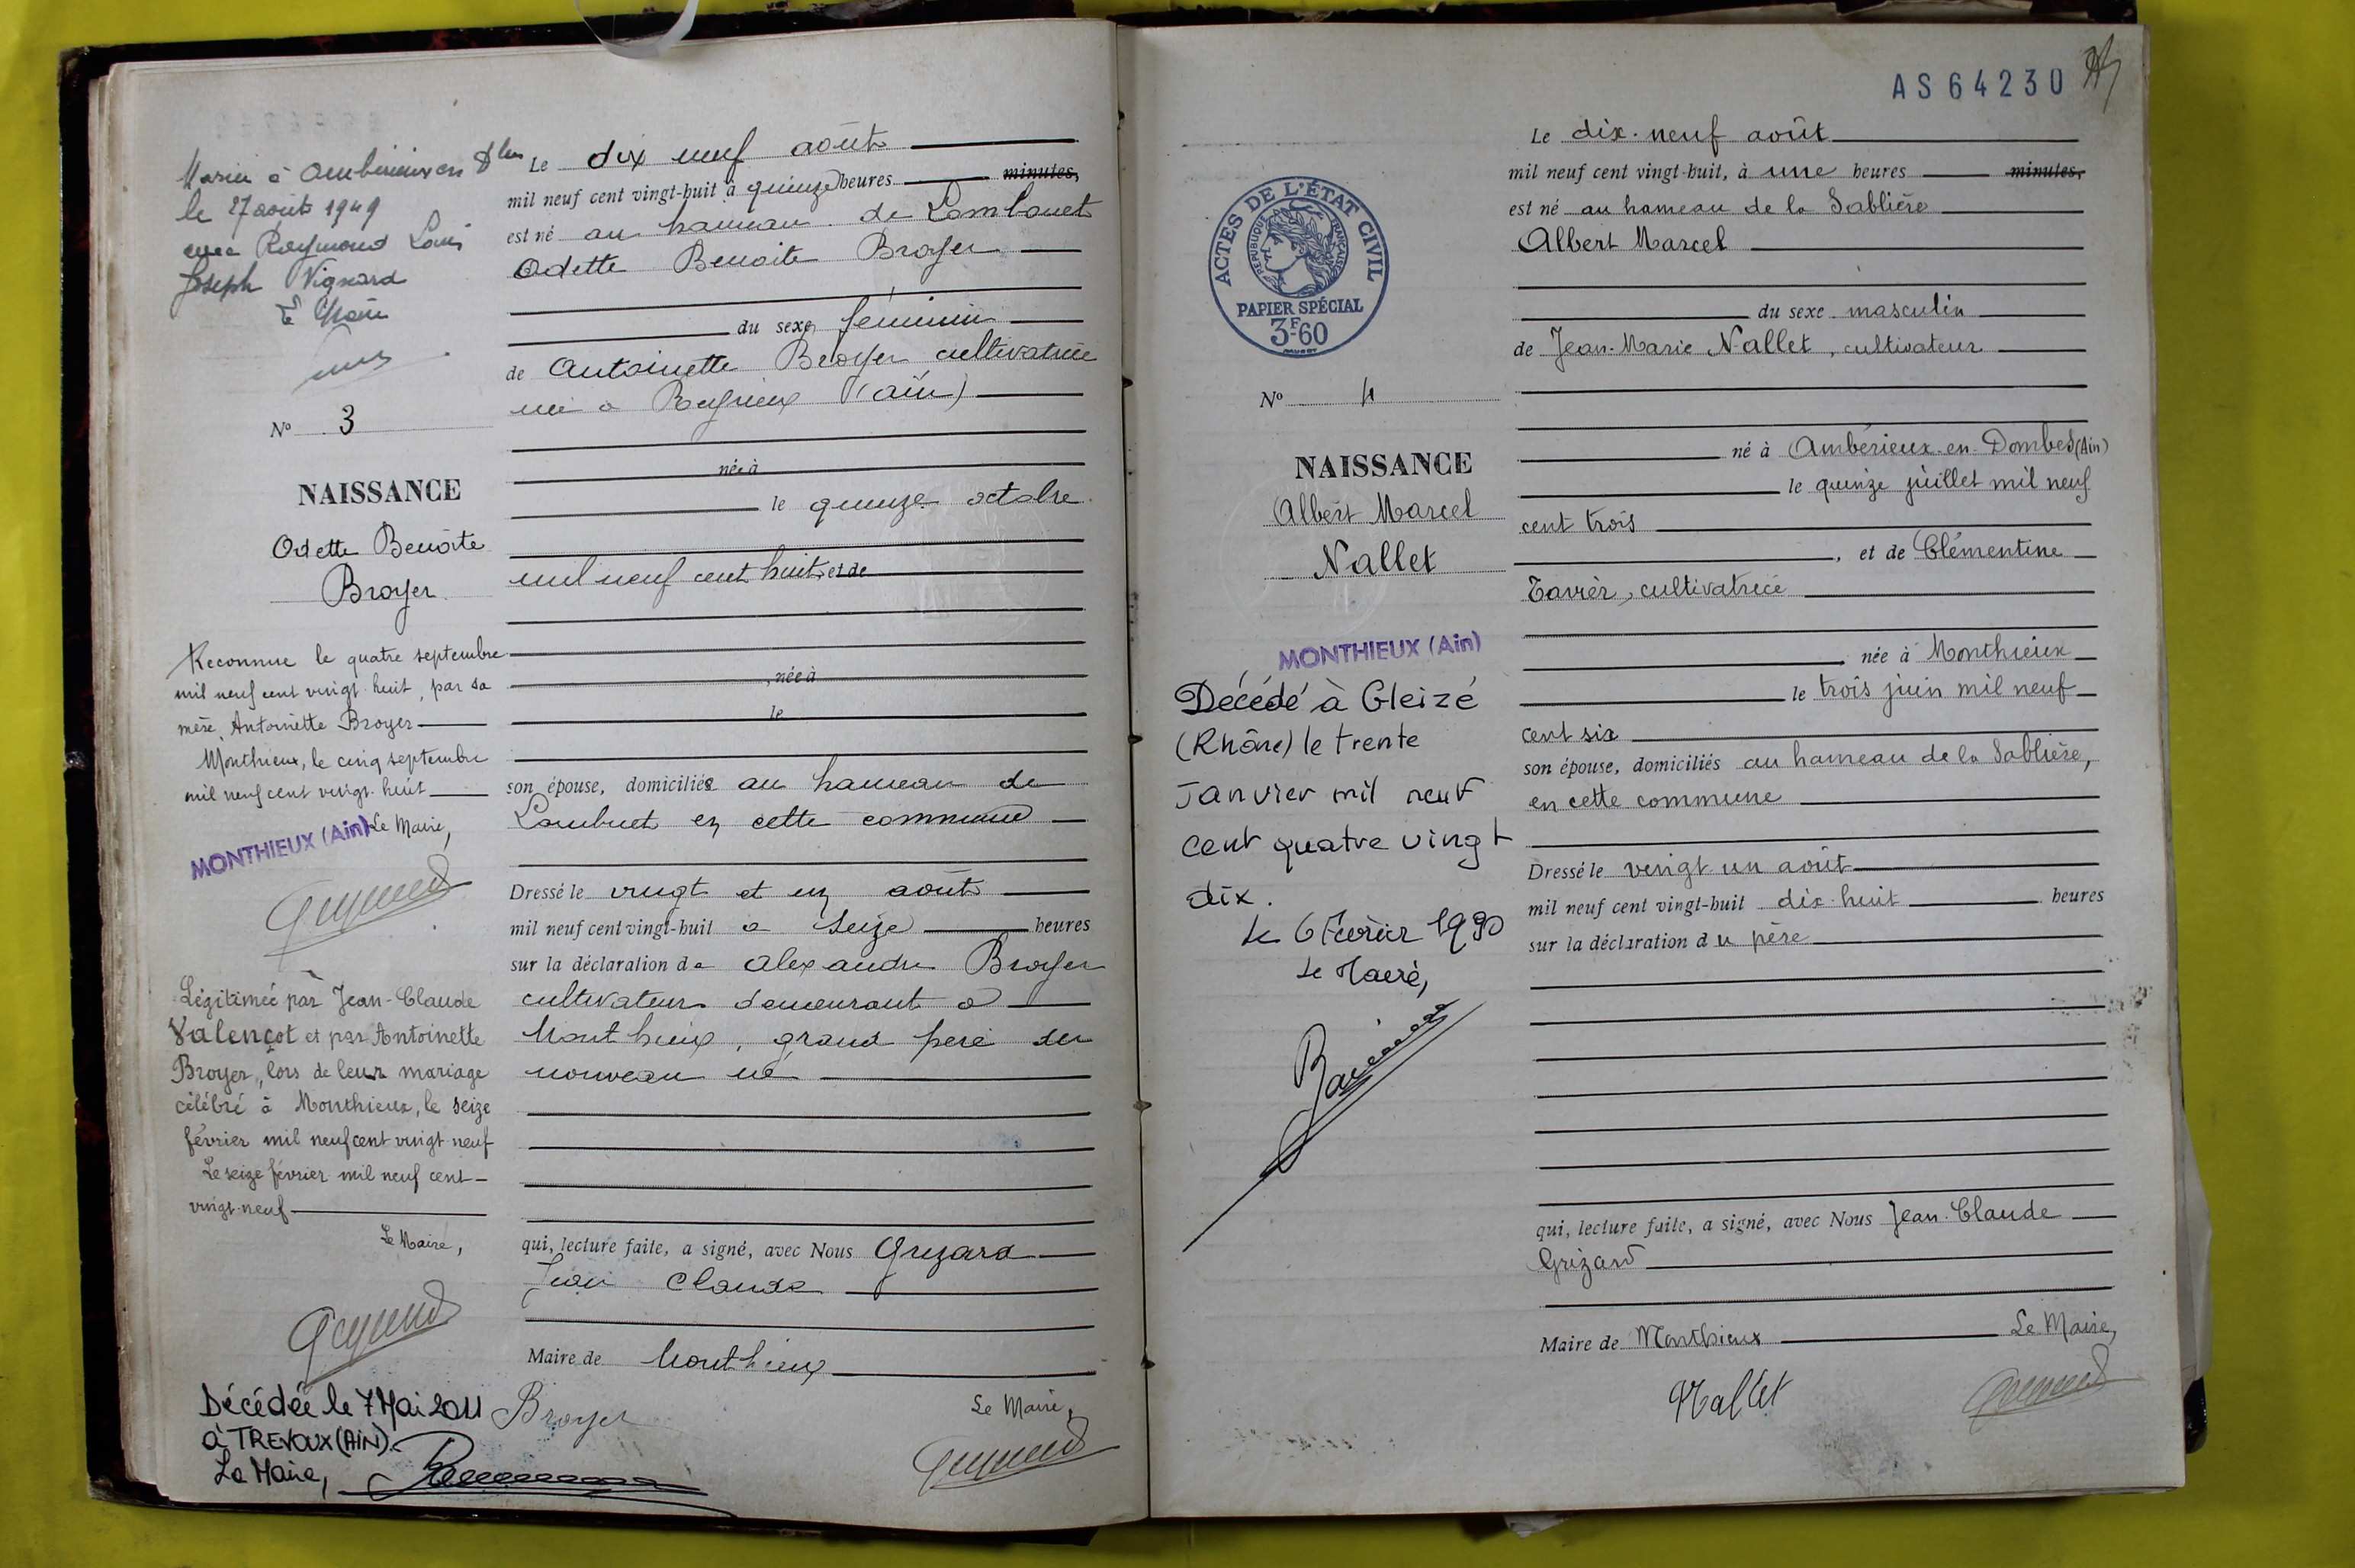 Marié à Ambérieux en Dbes
le 27 août 1949
avec Raymond Louis
Joseph Vignard
Le Maire
N° 3
NAISSANCE
Odette Benoîte
Broyer
Reconnue le quatre septembre
mil neuf cent vingt-huit, par sa
mère, Antoinette Broyer
Monthieux, le cinq septembre
mil neuf cent vingt-huit
MONTHIEUX (Ain) Le Maire,
Légitimée par Jean-Claude
Valençot et par Antoinette
Broyer, lors de leur mariage
célébré à Monthieux, le seize
février mil neuf cent vingt-neuf
Le seize février mil neuf cent
vingt-neuf
Le Maire,
Décédée le 7 Mai 2011
à TREVOUX (AIN).
Le Maire,
Le dix neuf août
mil neuf cent vingt-huit à quinze heures minutes,
est né au hameau de Lombouet
Odette Benoite Broyer
du sexe féminin
de Antoinette Broyer cultivatrice
née à Reyrieux (ain)
née à
le quinze octobre
mil neuf cent huit, et de
, née à
le
son épouse, domiciliée au hameau de
Lombuet en cette commune
Dressé le vingt et un août
mil neuf cent vingt-huit à seize heures
sur la déclaration de Alexandre Broyer
cultivateur demeurant à
Monthieux, grand père du
nouveau né
qui, lecture faite, a signé, avec Nous Grizard
Jean Claude
Maire de Monthieux
Broyer
Le Maire,
AS64230
ACTES DE L'ÉTAT CIVIL
RÉPUBLIQUE FRANÇAISE
PAPIER SPÉCIAL
3F60
N° 4
NAISSANCE
Albert Marcel
Nallet
MONTHIEUX (Ain)
Décédé à Gleizé
(Rhône) le trente
Janvier mil neuf
cent quatre vingt
dix.
Le 6 Février 1990
Le Maire,
Le dix-neuf août
mil neuf cent vingt-huit, à une heures minutes,
est né au hameau de la Sablière
Albert Marcel
du sexe masculin
de Jean-Marie Nallet, cultivateur
né à Ambérieux-en-Dombes (Ain)
le quinze juillet mil neuf
cent trois
, et de Clémentine
Tavier, cultivatrice
née à Monthieux
le trois juin mil neuf
cent six
son épouse, domiciliés au hameau de la Sablière,
en cette commune
Dressé le vingt un août
mil neuf cent vingt-huit dix-huit heures
sur la déclaration du père
qui, lecture faite, a signé, avec Nous Jean-Claude
Grizard
Maire de Monthieux Le Maire,
Nallet